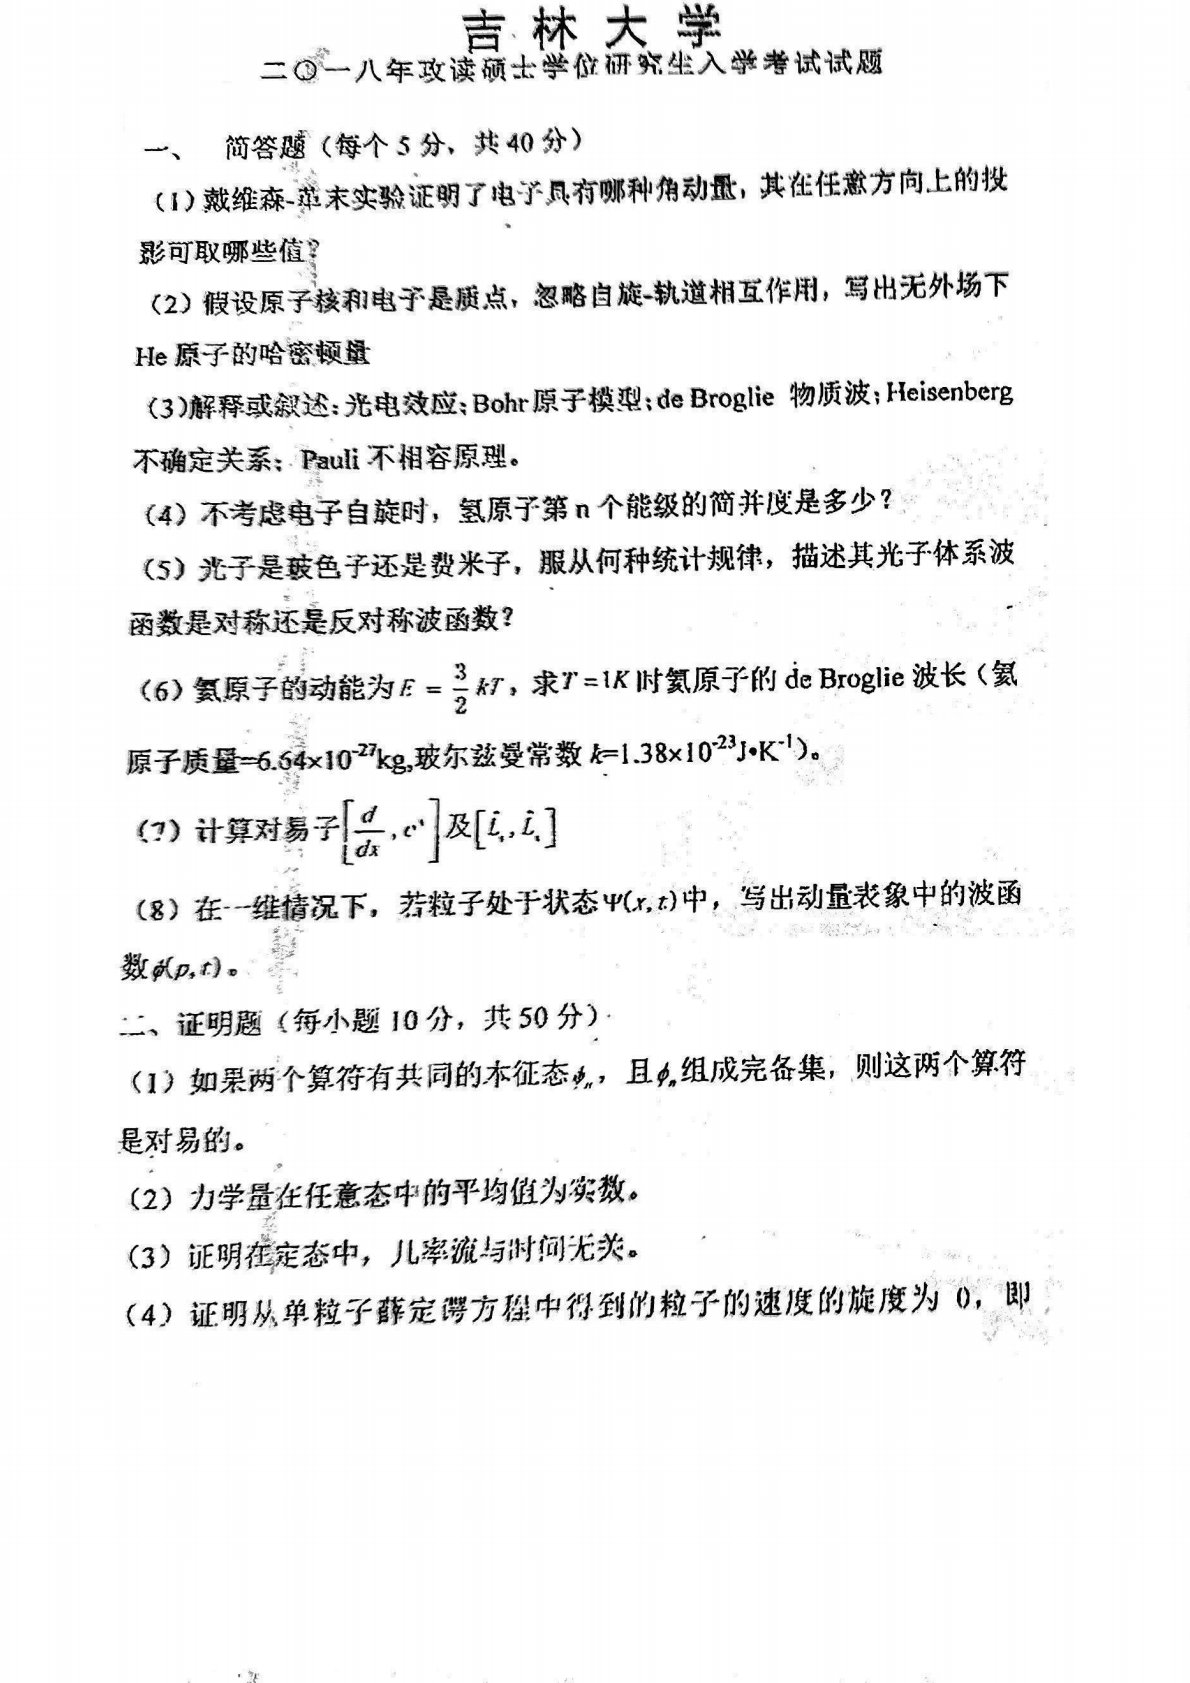 吉林大学
二〇一八年攻读硕士学位研究生入学考试试题
一、 简答题（每个 5 分，共 40 分）
（1）戴维森-革末实验证明了电子具有哪种角动量，其在任意方向上的投
影可取哪些值？
（2）假设原子核和电子是质点，忽略自旋-轨道相互作用，写出无外场下
He 原子的哈密顿量
（3）解释或叙述：光电效应；Bohr 原子模型；de Broglie 物质波；Heisenberg
不确定关系；Pauli 不相容原理。
（4）不考虑电子自旋时，氢原子第 n 个能级的简并度是多少？
（5）光子是玻色子还是费米子，服从何种统计规律，描述其光子体系波
函数是对称还是反对称波函数？
（6）氦原子的动能为 E = 3/2 kT，求 T=1K 时氦原子的 de Broglie 波长（氦
原子质量=6.64×10⁻²⁷kg,玻尔兹曼常数 k=1.38×10⁻²³J•K⁻¹）。
（7）计算对易子 [d/dx, ] 及 [L̂, L̂]
（8）在一维情况下，若粒子处于状态 Ψ(x,t) 中，写出动量表象中的波函
数 φ(p,t)。
二、证明题（每小题 10 分，共 50 分）
（1）如果两个算符有共同的本征态 φₙ，且 φₙ 组成完备集，则这两个算符
是对易的。
（2）力学量在任意态中的平均值为实数。
（3）证明在定态中，几率流与时间无关。
（4）证明从单粒子薛定谔方程中得到的粒子的速度的旋度为 0，即